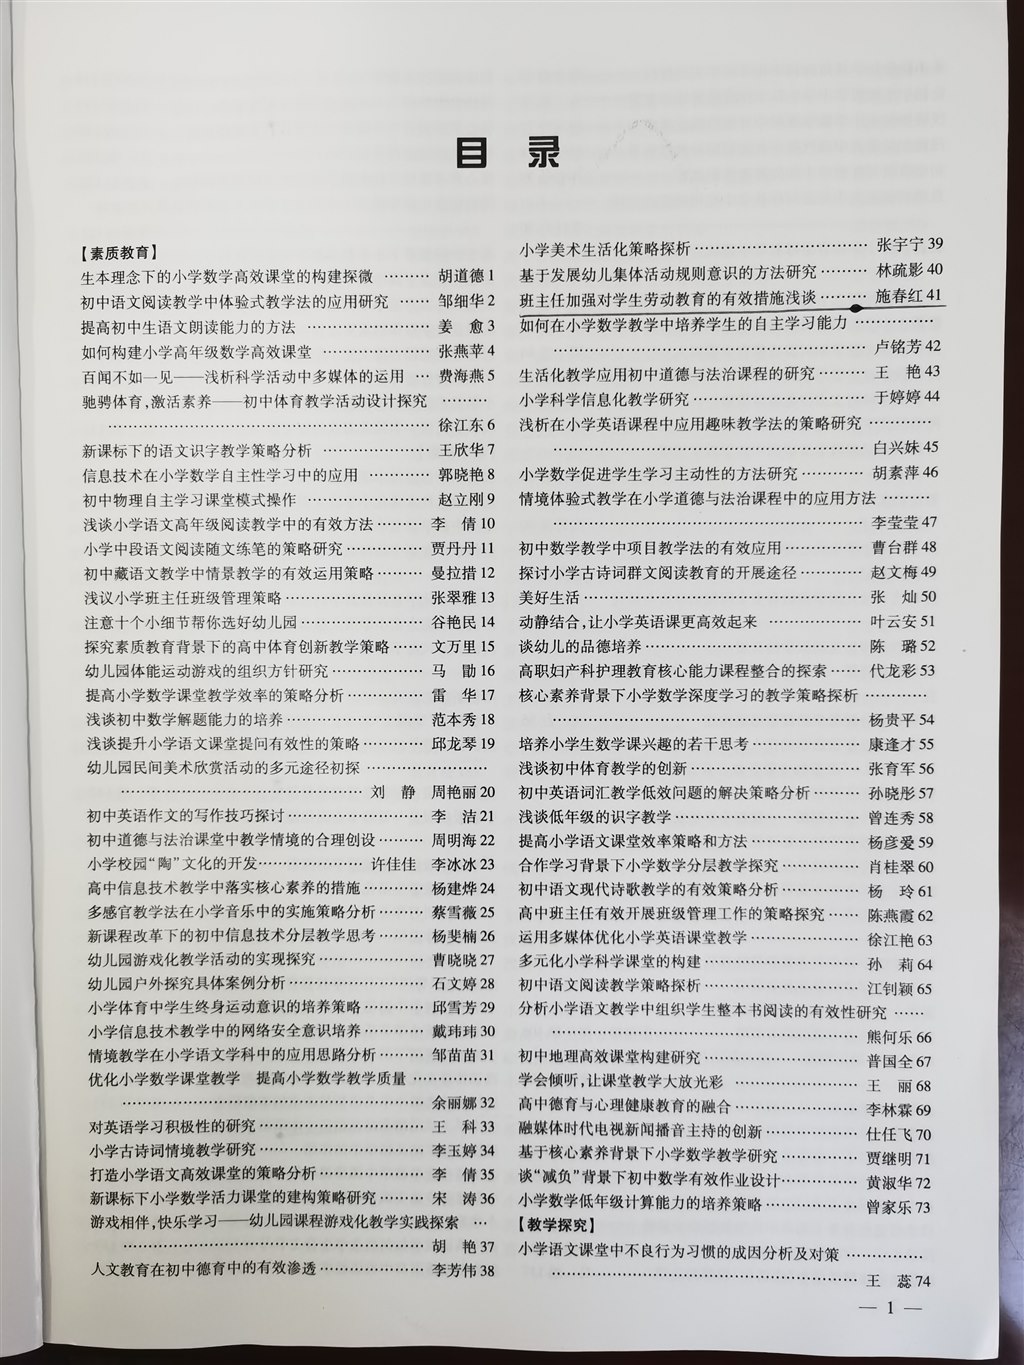 目 录
【素质教育】
生本理念下的小学数学高效课堂的构建探微 ……… 胡道德 1
初中语文阅读教学中体验式教学法的应用研究 …… 邹细华 2
提高初中生语文朗读能力的方法 ……………… 姜 愈 3
如何构建小学高年级数学高效课堂 ……………… 张燕苹 4
百闻不如一见——浅析科学活动中多媒体的运用 … 费海燕 5
驰骋体育,激活素养——初中体育教学活动设计探究 ………
……………………………………… 徐江东 6
新课标下的语文识字教学策略分析 ……………… 王欣华 7
信息技术在小学数学自主性学习中的应用 ……… 郭晓艳 8
初中物理自主学习课堂模式操作 ……………… 赵立刚 9
浅谈小学语文高年级阅读教学中的有效方法 ……… 李 倩 10
小学中段语文阅读随文练笔的策略研究 ………… 贾丹丹 11
初中藏语文教学中情景教学的有效运用策略 ……… 曼拉措 12
浅议小学班主任班级管理策略 ……………… 张翠雅 13
注意十个小细节帮你选好幼儿园 ……………… 谷艳民 14
探究素质教育背景下的高中体育创新教学策略 …… 文万里 15
幼儿园体能运动游戏的组织方针研究 ………… 马 勖 16
提高小学数学课堂教学效率的策略分析 ………… 雷 华 17
浅谈初中数学解题能力的培养 ……………… 范本秀 18
浅谈提升小学语文课堂提问有效性的策略 ……… 邱龙琴 19
幼儿园民间美术欣赏活动的多元途径初探 ……………
…………………………… 刘 静 周艳丽 20
初中英语作文的写作技巧探讨 ……………… 李 洁 21
初中道德与法治课堂中教学情境的合理创设 ……… 周明海 22
小学校园“陶”文化的开发 …………… 许佳佳 李冰冰 23
高中信息技术教学中落实核心素养的措施 ……… 杨建烨 24
多感官教学法在小学音乐中的实施策略分析 ……… 蔡雪薇 25
新课程改革下的初中信息技术分层教学思考 ……… 杨斐楠 26
幼儿园游戏化教学活动的实现探究 …………… 曹晓晓 27
幼儿园户外探究具体案例分析 ……………… 石文婷 28
小学体育中学生终身运动意识的培养策略 ……… 邱雪芳 29
小学信息技术教学中的网络安全意识培养 ……… 戴玮玮 30
情境教学在小学语文学科中的应用思路分析 ……… 邹苗苗 31
优化小学数学课堂教学 提高小学数学教学质量 …………
……………………………………… 余丽娜 32
对英语学习积极性的研究 ……………… 王 科 33
小学古诗词情境教学研究 ……………… 李玉婷 34
打造小学语文高效课堂的策略分析 …………… 李 倩 35
新课标下小学数学活力课堂的建构策略研究 ……… 宋 涛 36
游戏相伴,快乐学习——幼儿园课程游戏化教学实践探索 …
……………………………………… 胡 艳 37
人文教育在初中德育中的有效渗透 …………… 李芳伟 38
小学美术生活化策略探析 ……………… 张宇宁 39
基于发展幼儿集体活动规则意识的方法研究 ……… 林疏影 40
班主任加强对学生劳动教育的有效措施浅谈 ……… 施春红 41
如何在小学数学教学中培养学生的自主学习能力 …………
……………………………………… 卢铭芳 42
生活化教学应用初中道德与法治课程的研究 ……… 王 艳 43
小学科学信息化教学研究 ……………… 于婷婷 44
浅析在小学英语课程中应用趣味教学法的策略研究 ………
……………………………………… 白兴妹 45
小学数学促进学生学习主动性的方法研究 ……… 胡素萍 46
情境体验式教学在小学道德与法治课程中的应用方法 ………
……………………………………… 李莹莹 47
初中数学教学中项目教学法的有效应用 ………… 曹台群 48
探讨小学古诗词群文阅读教育的开展途径 ……… 赵文梅 49
美好生活 ……………………………… 张 灿 50
动静结合,让小学英语课更高效起来 ………… 叶云安 51
谈幼儿的品德培养 ……………………… 陈 璐 52
高职妇产科护理教育核心能力课程整合的探索 …… 代龙彩 53
核心素养背景下小学数学深度学习的教学策略探析 ………
……………………………………… 杨贵平 54
培养小学生数学课兴趣的若干思考 …………… 康逢才 55
浅谈初中体育教学的创新 ……………… 张育军 56
初中英语词汇教学低效问题的解决策略分析 …… 孙晓彤 57
浅谈低年级的识字教学 ……………… 曾连秀 58
提高小学语文课堂效率策略和方法 …………… 杨彦爱 59
合作学习背景下小学数学分层教学探究 ……… 肖桂翠 60
初中语文现代诗歌教学的有效策略分析 ……… 杨 玲 61
高中班主任有效开展班级管理工作的策略探究 …… 陈燕霞 62
运用多媒体优化小学英语课堂教学 …………… 徐江艳 63
多元化小学科学课堂的构建 ……………… 孙 莉 64
初中语文阅读教学策略探析 ……………… 江钊颖 65
分析小学语文教学中组织学生整本书阅读的有效性研究 ……
……………………………………… 熊何乐 66
初中地理高效课堂构建研究 ……………… 普国全 67
学会倾听,让课堂教学大放光彩 …………… 王 丽 68
高中德育与心理健康教育的融合 …………… 李林霖 69
融媒体时代电视新闻播音主持的创新 ………… 仕任飞 70
基于核心素养背景下小学数学教学研究 ……… 贾继明 71
谈“减负”背景下初中数学有效作业设计 ……… 黄淑华 72
小学数学低年级计算能力的培养策略 ………… 曾家乐 73
【教学探究】
小学语文课堂中不良行为习惯的成因分析及对策 …………
……………………………………… 王 蕊 74
— 1 —